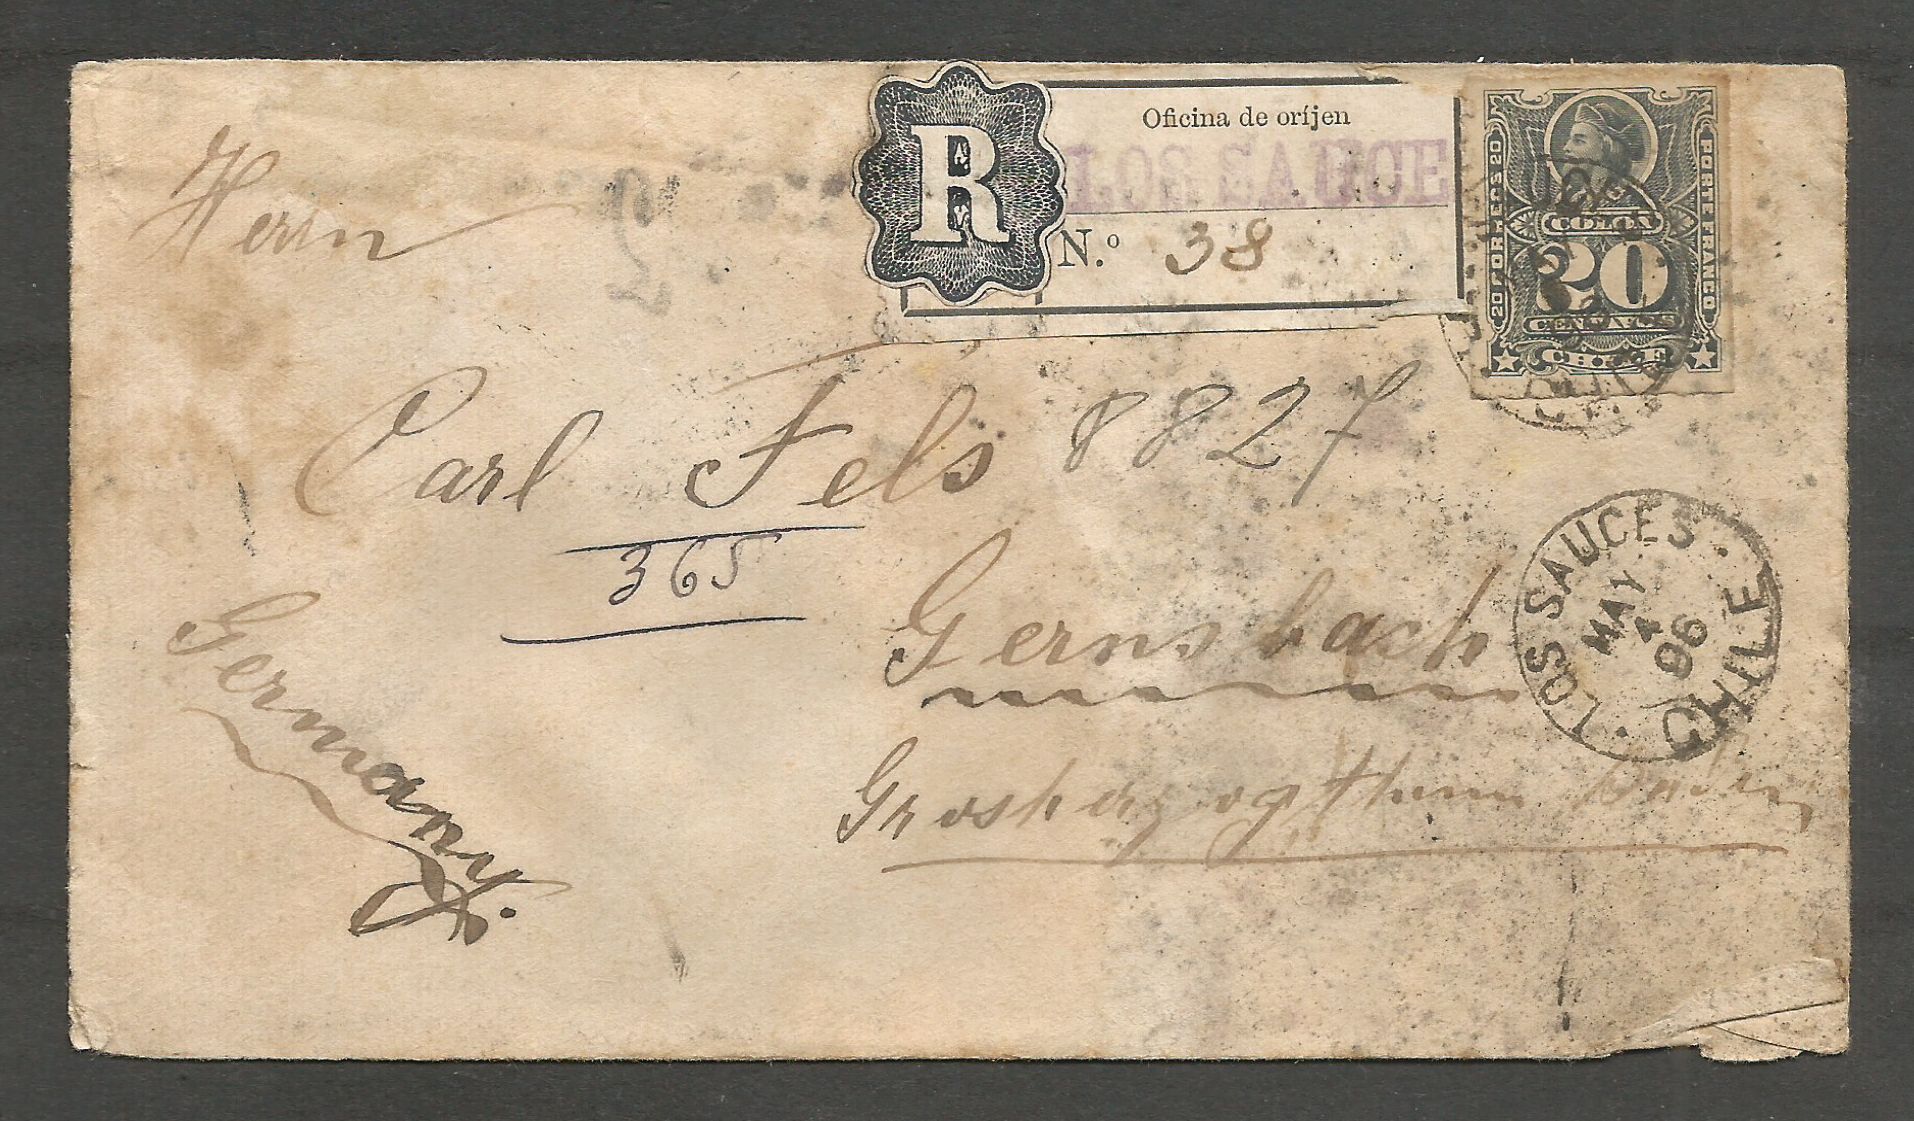 Herrn
R
Oficina de oríjen
LOS SAUCE
N.º 38
20 PORTE FRANCO
COLON
20
CENTAVOS
CHILE
Carl Fels 8827
365
Gernsbach
Germany.
Grosherzogthum Baden
LOS SAUCES
MAY
4
96
CHILE